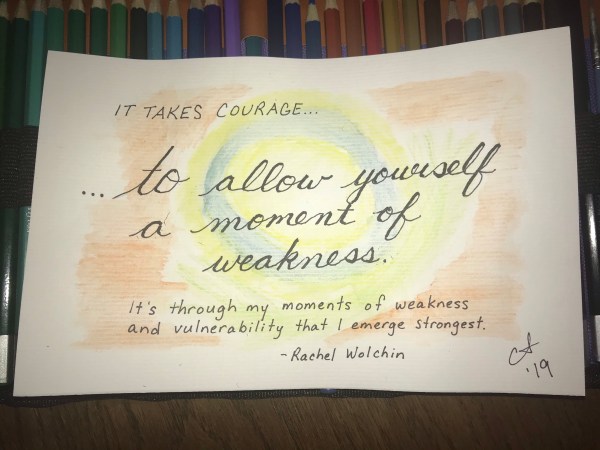 IT TAKES COURAGE...
... to allow yourself
a moment of
weakness.
It's through my moments of weakness
and vulnerability that I emerge strongest.
- Rachel Wolchin
'19